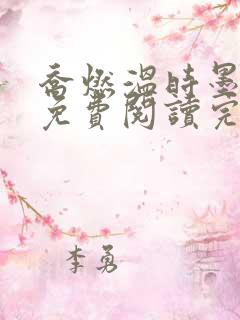 喬燃溫時墨
免費閱讀完
李勇